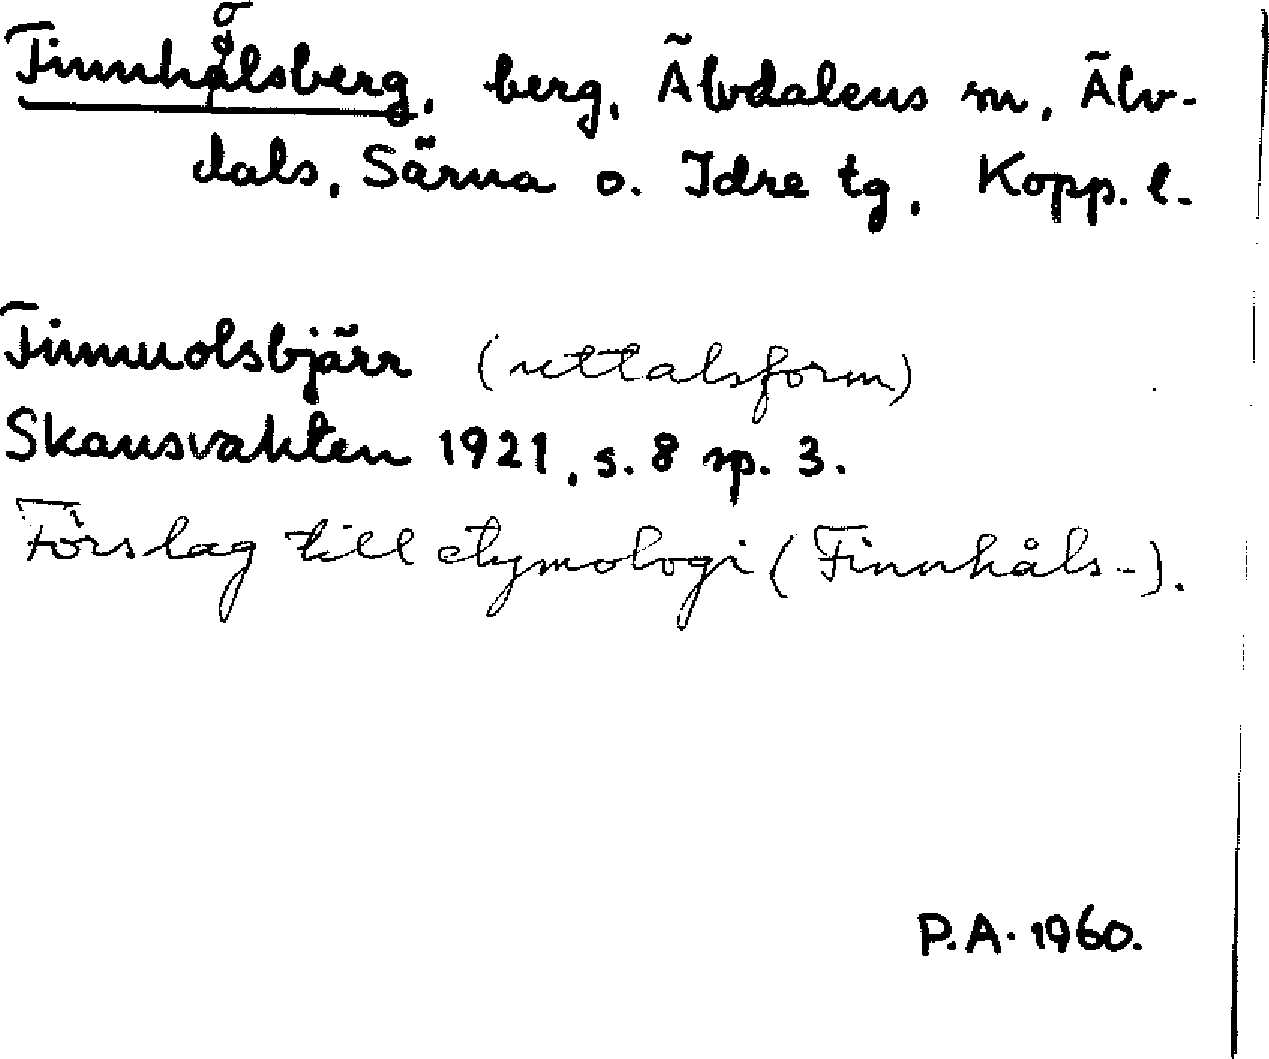 Finnhålsberg, berg, Älvdalens sn, Älv-
dals, Särna o. Idre tg, Kopp. l.
Finnuolsbjärr (uttalsform)
Skansvakten 1921, s. 8 sp. 3.
Förslag till etymologi (Finnhåls-).
P.A. 1960.